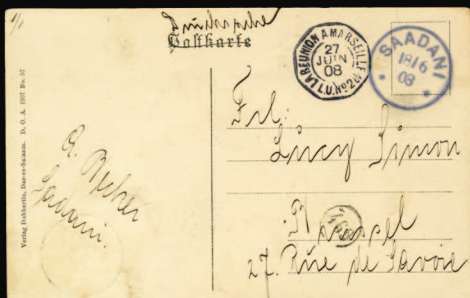 1/1
Drucksache
Postkarte
LA REUNION A MARSEILLE
27
JUIN
08
L.U. Nº 2
SAADANI
18/6
08
Frl.
Lucy Simon
Brussel
27. Rue de Savoie
A. Becker
Saadani.
Verlag Dobbertin, Dar-es-Salaam. D. O. A. 1907 No. 57